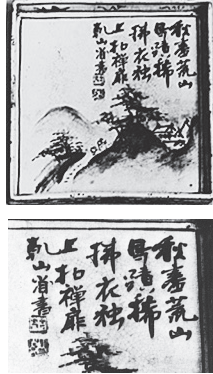 秋盡荒山
馬蹟稀
拂衣独
上扣禅扉
乾山省書
秋盡荒山
馬蹟稀
拂衣独
上扣禅扉
乾山省書